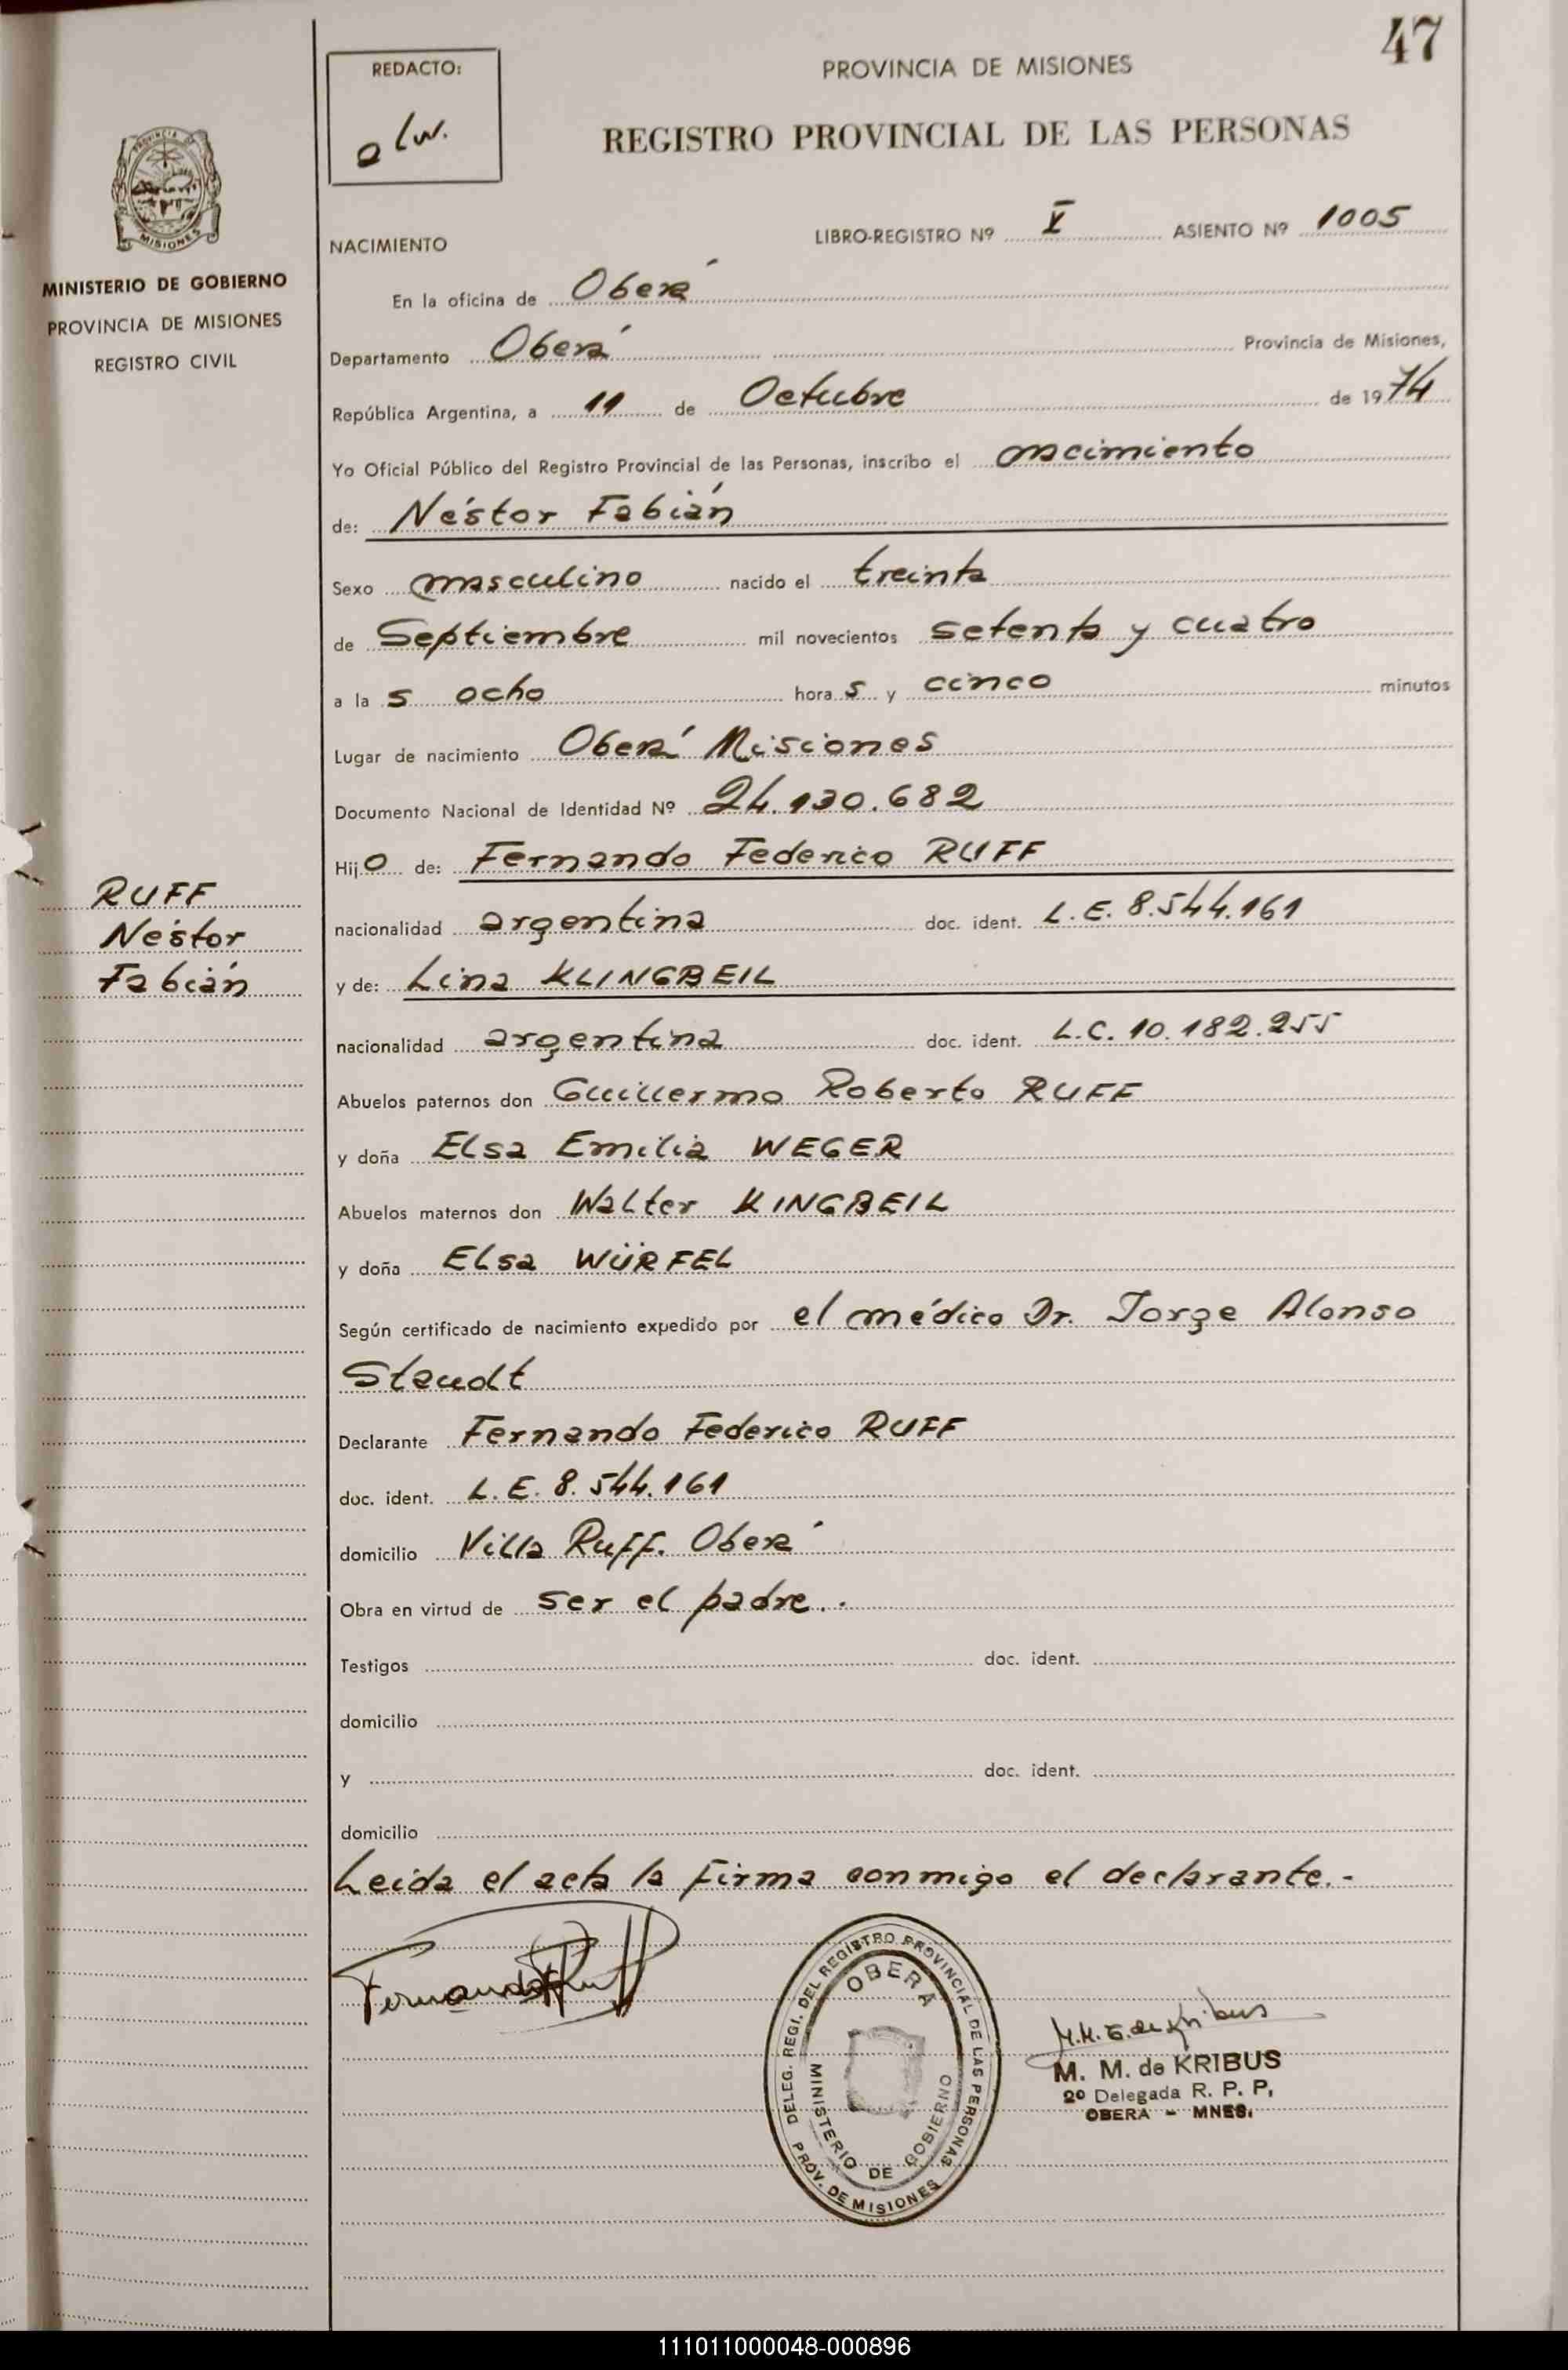 47
REDACTO:
PROVINCIA DE MISIONES
REGISTRO PROVINCIAL DE LAS PERSONAS
PROVINCIA DE
MISIONES
MINISTERIO DE GOBIERNO
PROVINCIA DE MISIONES
REGISTRO CIVIL
NACIMIENTO LIBRO-REGISTRO Nº V ASIENTO Nº 1005
En la oficina de Oberá
Departamento Oberá Provincia de Misiones,
República Argentina, a 11 de Octubre de 1974
Yo Oficial Público del Registro Provincial de las Personas, inscribo el nacimiento
de: Néstor Fabián
Sexo masculino nacido el treinta
de Septiembre mil novecientos setenta y cuatro
a la s ocho hora s y cinco minutos
Lugar de nacimiento Oberá Misiones
Documento Nacional de Identidad Nº 24.130.682
Hijo de: Fernando Federico RUFF
RUFF
Néstor
Fabián
nacionalidad argentina doc. ident. L.E. 8.544.161
y de: Lina KLINGBEIL
nacionalidad argentina doc. ident. L.C. 10.182.255
Abuelos paternos don Guillermo Roberto RUFF
y doña Elsa Emilia WEGER
Abuelos maternos don Walter KINGBEIL
y doña Elsa WÜRFEL
Según certificado de nacimiento expedido por el médico Dr. Jorge Alonso
Staudt
Declarante Fernando Federico RUFF
doc. ident. L.E. 8.544.161
domicilio Villa Ruff. Oberá
Obra en virtud de ser el padre.-
Testigos doc. ident.
domicilio
y doc. ident.
domicilio
Leida el acta la firma conmigo el declarante.-
Fernando Ruff
DELEG. REGI. DEL REGISTRO PROVINCIAL DE LAS PERSONAS
OBERA
MINISTERIO DE GOBIERNO
PROV. DE MISIONES
M.M.G. de Kribus
M. M. de KRIBUS
2º Delegada R. P. P.
OBERA - MNES.
111011000048-000896